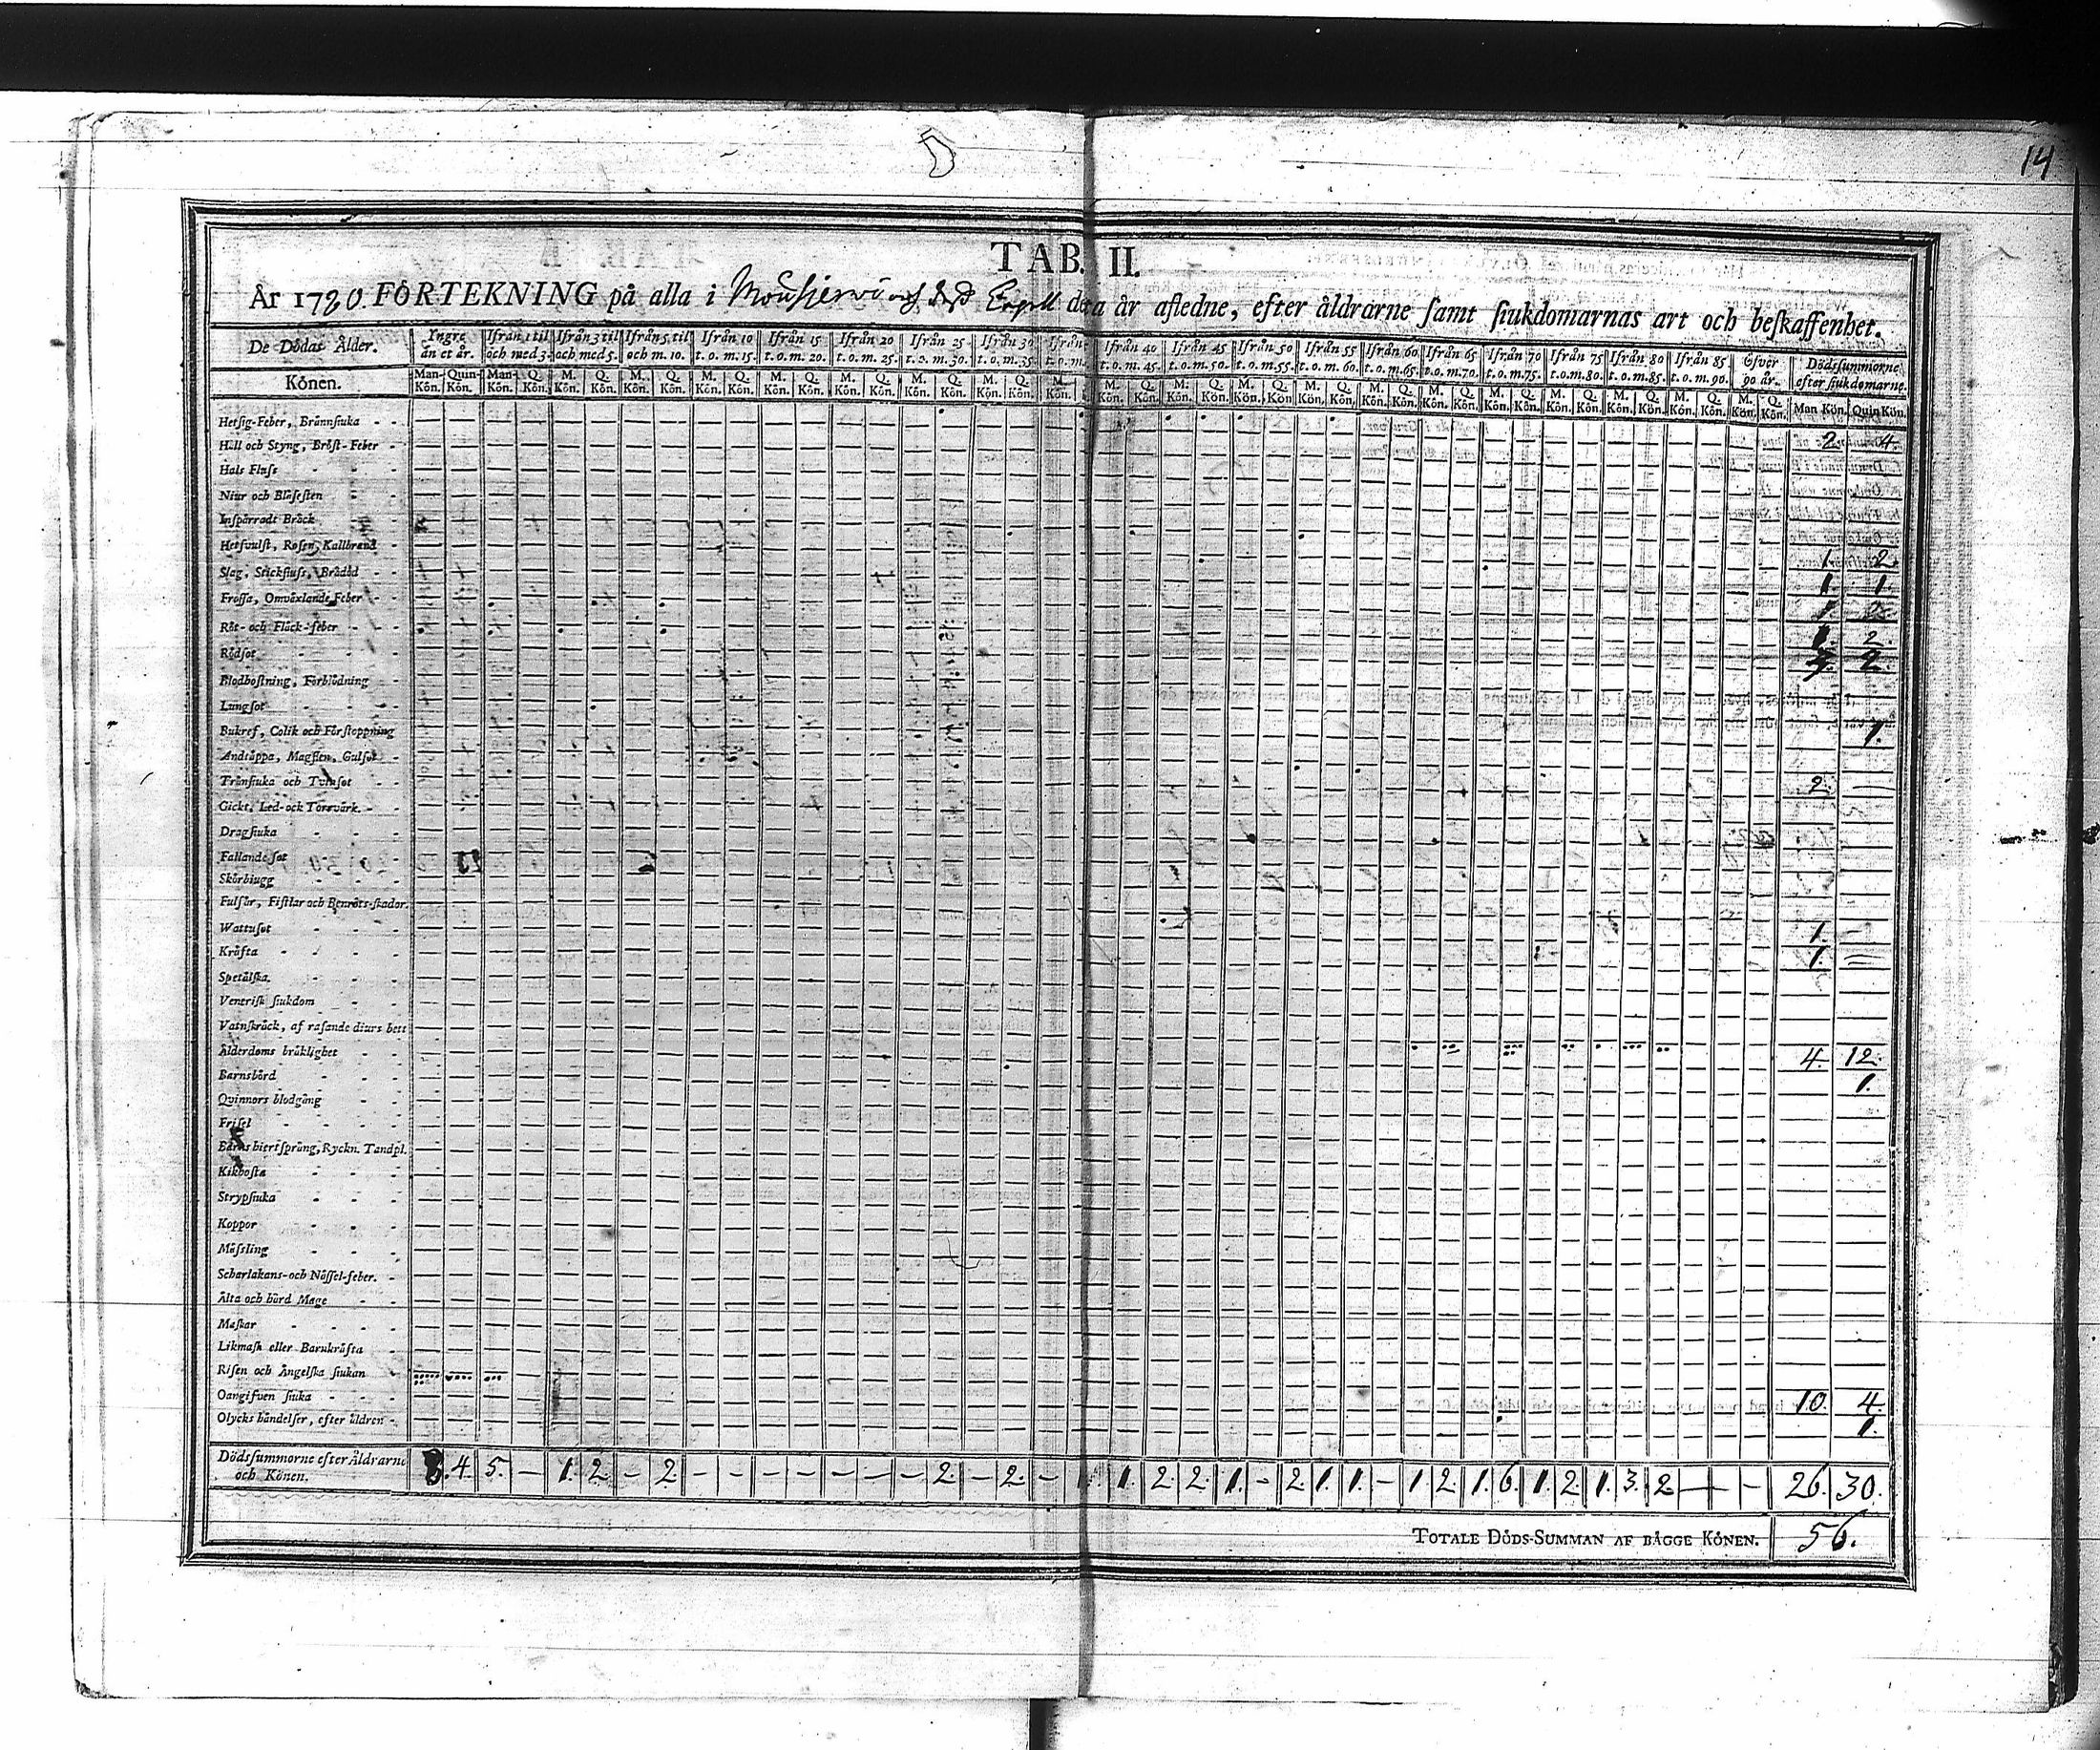 14
TAB. II.
År 1780. FÖRTEKNING på alla i och detta år afledne, efter åldrarne samt siukdomarnas art och beskaffenhet.
De Dödas Ålder. Yngre än et år. Ifrån 1 til och med 3. Ifrån 3 til och med 5. Ifrån 5. til och m. 10. Ifrån 10 t. o. m. 15. Ifrån 15 t. o. m. 20. Ifrån 20 t. o. m. 25. Ifrån 25 t. o. m. 30. Ifrån 30 t. o. m. 35. Ifrån t. o. m. Ifrån 40 t. o. m. 45. Ifrån 45 t. o. m. 50. Ifrån 50 t. o. m. 55. Ifrån 55 t. o. m. 60. Ifrån 60 t. o. m. 65. Ifrån 65 t. o. m. 70. Ifrån 70 t. o. m. 75. Ifrån 75 t. o. m. 80. Ifrån 80 t. o. m. 85. Ifrån 85 t. o. m. 90. Öfver 90 år. Dödssummorne efter siukdomarne.
Könen. Man-Kön. Quin-Kön. Man-Kön. Q. Kön. M. Kön. Q. Kön. M. Kön. Q. Kön. M. Kön. Q. Kön. M. Kön. Q. Kön. M. Kön. Q. Kön. M. Kön. Q. Kön. M. Kön. Q. Kön. M. Kön. M. Kön. Q. Kön. M. Kön. Q. Kön. M. Kön. Q. Kön. M. Kön. Q. Kön. M. Kön. Q. Kön. M. Kön. Q. Kön. M. Kön. Q. Kön. M. Kön. Q. Kön. M. Kön. Q. Kön. M. Kön. Q. Kön. M. Kön. Q. Kön. Man Kön. Quin Kön.
Hetsig-Feber, Brännsiuka
Håll och Styng, Bröst-Feber 2. 4.
Hals Fluss
Niur och Blåsesten
Inspärradt Bråck
Hetsvulst, Rosen, Kallbrand
Slag, Stickfluss, Brådöd 1. 2.
Frossa, Omväxlande Feber 1. 1.
Röt- och Fläck-feber 1. 2.
Rödsot 1. 2.
Blodhostning, Förblödning 2.
Lungsot
Bukref, Colik och Förstoppning 1.
Andtäppa, Magsten, Gulsot
Trånsiuka och Tvinsot 2.
Gickt, Led-och Torrvärk.
Dragsiuka
Fallande sot
Skörbiugg
Fulsår, Fistlar och Benröts-skador.
Wattusot 1.
Kräfta 1.
Spetälska.
Venerisk siukdom
Vatnskräck, af rasande diurs bett
Ålderdoms bräklighet 4. 12.
Barnsbörd 1.
Qvinnors blodgång
Frisel
Barns hiertsprång, Ryckn. Tandpl.
Kikhosta
Strypsiuka
Koppor
Mässling
Scharlakans-och Nässel-feber.
Älta och hård Mage
Maskar
Likmask eller Barnkräfta
Risen och Ängelska siukan
Oangifven siuka 10. 4.
Olycks händelser, efter åldren 1.
Dödssummorne efter Åldrarne och Könen. 8. 4. 5. — 1. 2. — 2 — — — — — — — 2. — 2. — 1. 1. 2. 2. 1. — 2. 1. 1. — 1. 2. 1. 6. 1. 2. 1. 3. 2. — — — 26. 30.
TOTALE DÖDS-SUMMAN AF BÄGGE KÖNEN. 56.